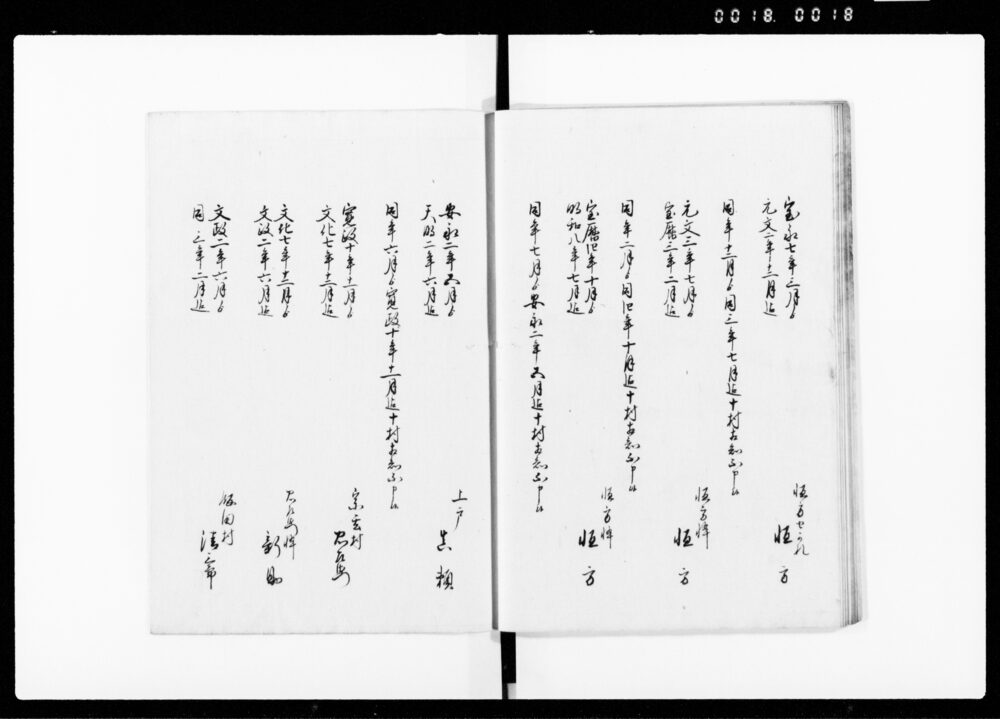 0018. 0018
宝永七年三月ゟ
元文二年十二月迄
恒方せかれ
恒方
同年十二月ゟ同三年七月迄十村相知不申候
元文三年七月ゟ
宝暦三年二月迄
恒方悴
恒方
同年二月ゟ同四年十月迄十村相知不申候
宝暦四年十月ゟ
明和八年七月迄
恒方悴
恒方
同年七月ゟ安永二年五月迄十村相知不申候
安永二年五月ゟ
天明二年六月迄
上戸
真頼
同年六月ゟ寛政十年十一月迄十村相知不申候
寛政十年十二月ゟ
文化七年十二月迄
宗玄村
文化七年十二月ゟ
文政二年六月迄
悴
新助
文政二年六月ゟ
同三年二月迄
飯田村